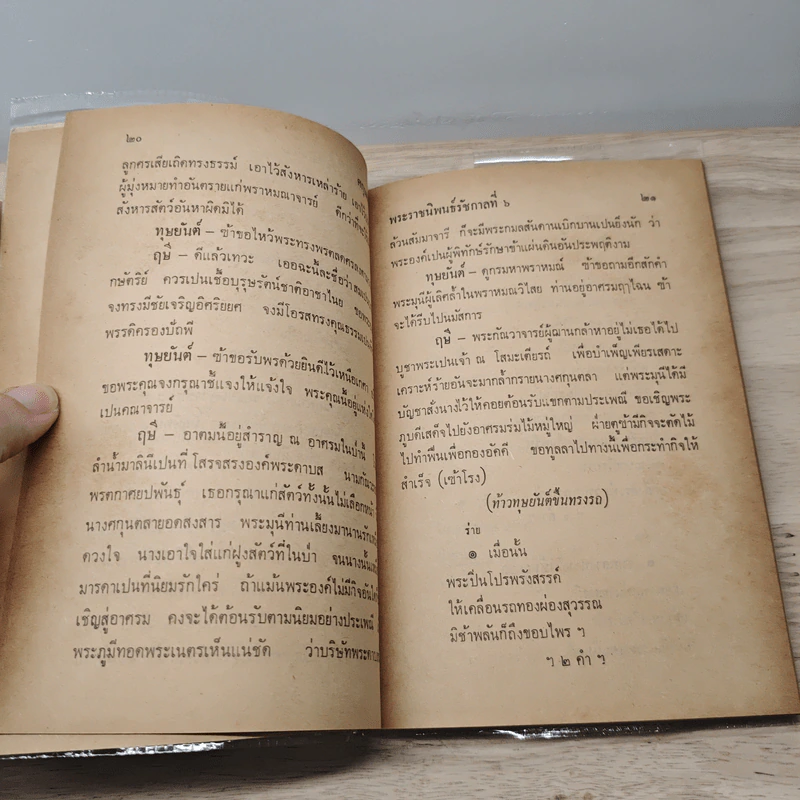 ๒๐
ลูกศรเสียเถิดทรงธรรม์ เอาไว้สังหารเหล่าร้าย
ผู้มุ่งหมายทำอันตรายแก่พราหมณาจารย์ ดีกว่าที่จะ
สังหารสัตว์อันหาผิดมิได้
ทุษยันต์ – ข้าขอไหว้พระทรงพรต
ฤษี – ดีแล้วเทวะ เออฉะนี้ละชื่อว่า
กษัตริย์ ควรเปนเชื้อบุรุษรัตน์ชาติอาชาไนย
จงทรงมีชัยเจริญอิศริยยศ จงมีโอรสทรงคุณธรรม
พรรดิครองปัถพี
ทุษยันต์ – ข้าขอรับพรด้วยยินดีไว้เหนือเกศา
ขอพระคุณจงกรุณาชี้แจงให้แจ้งใจ พระคุณนี้อยู่แห่ง
เปนคณาจารย์
ฤษี – อาตมนี้อยู่สำราญ ณ อาศรมในป่านี้
ลำน้ำมาลินีเปนที่โสรจสรงองค์พระดาบส
พรตกาศยปพันธุ์ เธอกรุณาแก่สัตว์ทั้งนั้นไม่เลือกหน้า
นางศกุนตลายอดสงสาร พระมุนีท่านเลี้ยงมานานรัก
ดวงใจ นางเอาใจใส่แก่ฝูงสัตว์ที่ในป่า จนนางนั้น
มารดาเปนที่นิยมรักใคร่ ถ้าแม้นพระองค์ไม่มีกิจอันใด
เชิญสู่อาศรม คงจะได้ต้อนรับตามนิยมอย่างประเพณี
พระภูมีทอดพระเนตรเห็นแน่ชัด ว่าบริษัทพระดาบส
พระราชนิพนธ์รัชกาลที่ ๖ ๒๑
ล้วนสัมมาจารี ก็จะมีพระกมลสันดานเบิกบานเปนยิ่งนัก ว่า
พระองค์เปนผู้พิทักษ์รักษาข้าแผ่นดินอันประพฤติงาม
ทุษยันต์ – ดูกรมหาพราหมณ์ ข้าขอถามอีกสักคำ
พระมุนีผู้เลิศล้ำในพราหมณวิไสย ท่านอยู่อาศรมฤๅไฉน ข้า
จะได้รีบไปนมัสการ
ฤษี – พระกัณวาจารย์ผู้ฌานกล้าหาอยู่ไม่เธอได้ไป
บูชาพระเปนเจ้า ณ โสมะเตียรถ์ เพื่อบำเพ็ญเพียรเสดาะ
เคราะห์ร้ายอันจะมากล้ำกรายนางศกุนตลา แต่พระมุนีได้มี
บัญชาสั่งนางไว้ให้คอยต้อนรับแขกตามประเพณี ขอเชิญพระ
ภูบดีเสด็จไปยังอาศรมร่มไม้หมู่ใหญ่ ฝ่ายตูข้ามีกิจจะตัดไม้
ไปทำฟืนเพื่อกองอัคคี ขอทูลลาไปทางนี้เพื่อกระทำกิจให้
สำเร็จ (เข้าโรง)
(ท้าวทุษยันต์ขึ้นทรงรถ)
ร่าย
๏ เมื่อนั้น
พระปิ่นโปรพรังสรรค์
ให้เคลื่อนรถทองผ่องสุวรรณ
มิช้าพลันก็ถึงขอบไพร ฯ
ฯ ๒ คำ ฯ